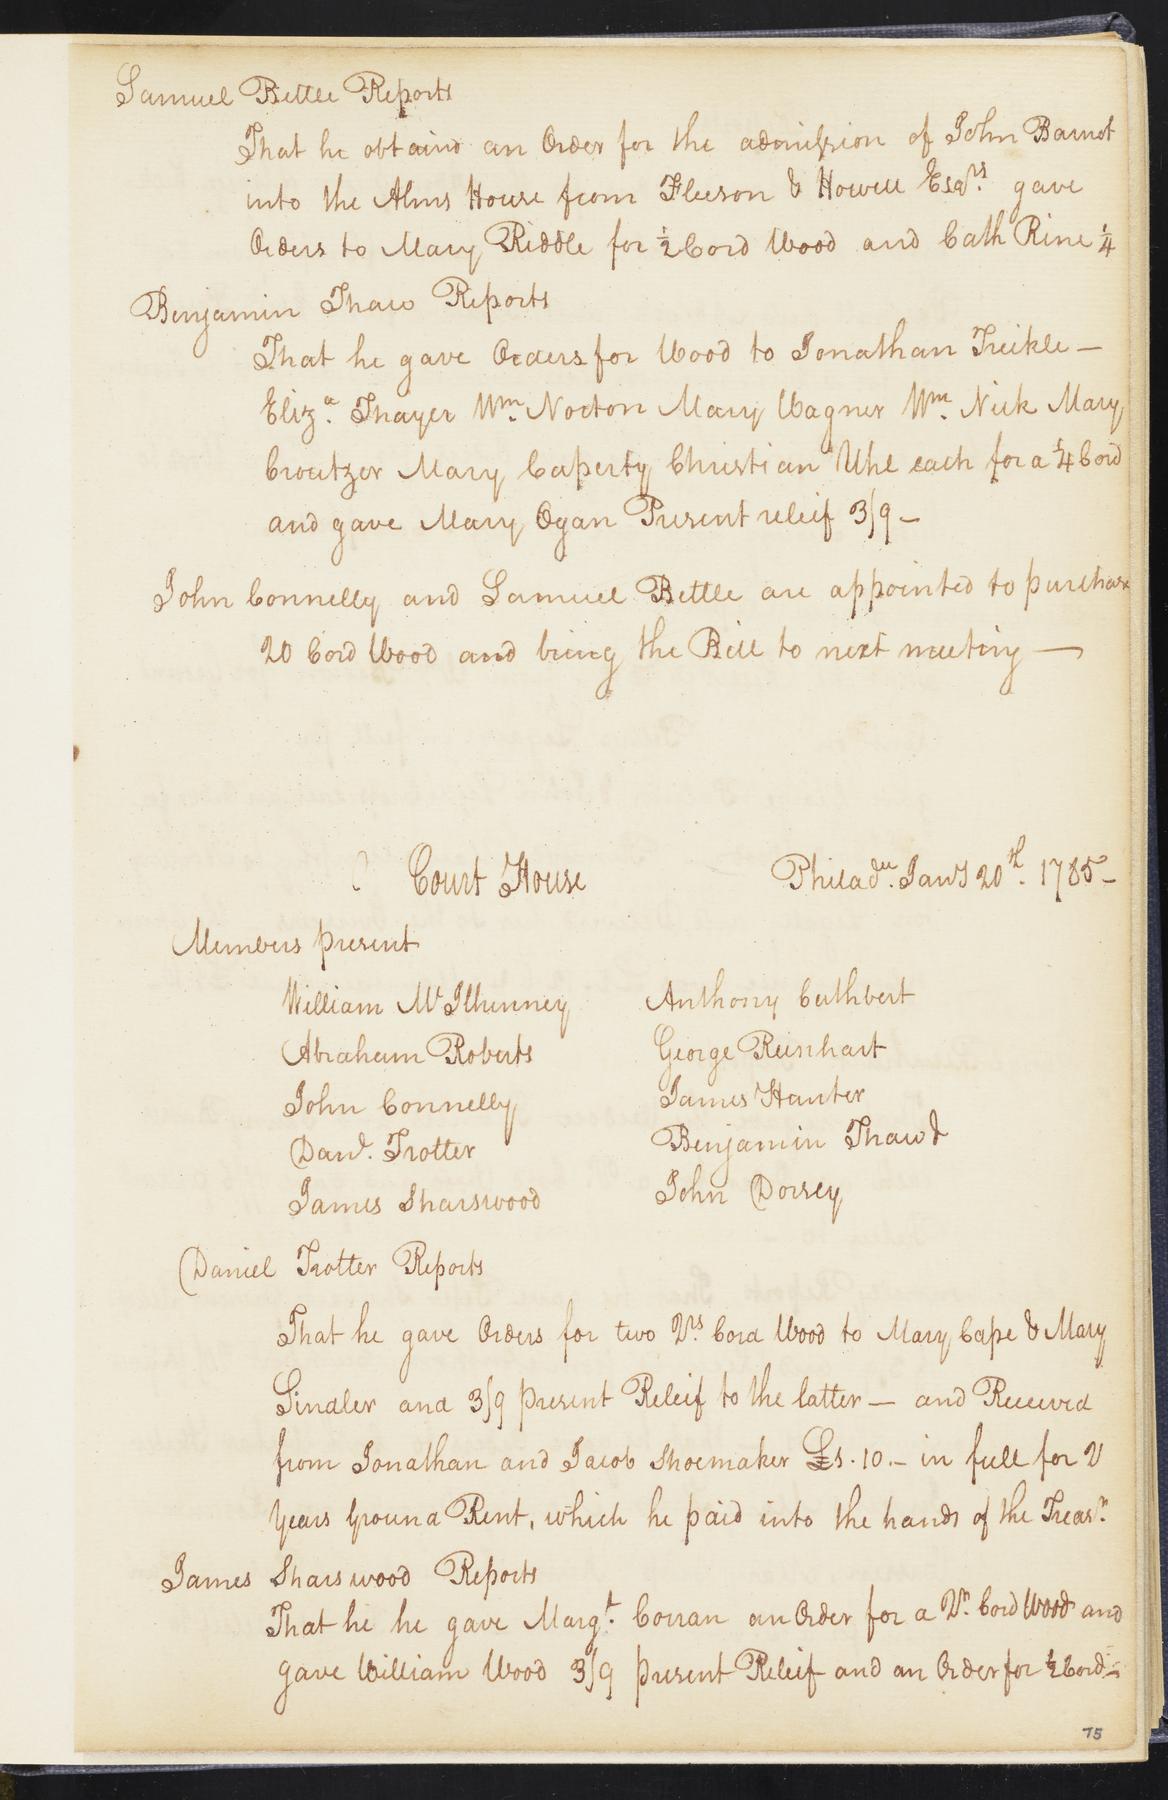 Samuel Bettle Reports
That he obtaind an Order for the admission of John Barnot
into the Alms House from Fleeson & Howell Esqrs. gave
Orders to Mary Riddle for ½ Cord Wood and Cath Rine ¼
Benjamin Thaw Reports
That he gave Orders for Wood to Jonathan Treikle —
Eliza. Thayer Wm. Norton Mary Wagner Wm. Nick Mary
Croutzer Mary Caperty Christian Uhl each for a ¼ Cord
and gave Mary Ogan Present releif 3/9 —
John Connelly and Samuel Bettle are appointed to purchase
20 Cord Wood and bring the Bill to next meeting —
Court House Philade. Jany 20th. 1785 —
Members present
William McIlhenney Anthony Cuthbert
Abraham Roberts George Reinhart
John Connelly James Hunter
Danl. Trotter Benjamin Thaw &
James Sharswood John Dorsey
Daniel Trotter Reports
That he gave Orders for two Qrs. Cord Wood to Mary Cape & Mary
Sindler and 3/9 present Releif to the latter — and Received
from Jonathan and Jacob Shoemaker . 10. — in full for 2
Years Ground Rent, which he paid into the hands of the Treasr.
James Sharswood Reports
That he he gave Margt. Corran an Order for a Qr. Cord Wood and
gave William Wood 3/9 present Releif and an Order for ½ Cord —
75